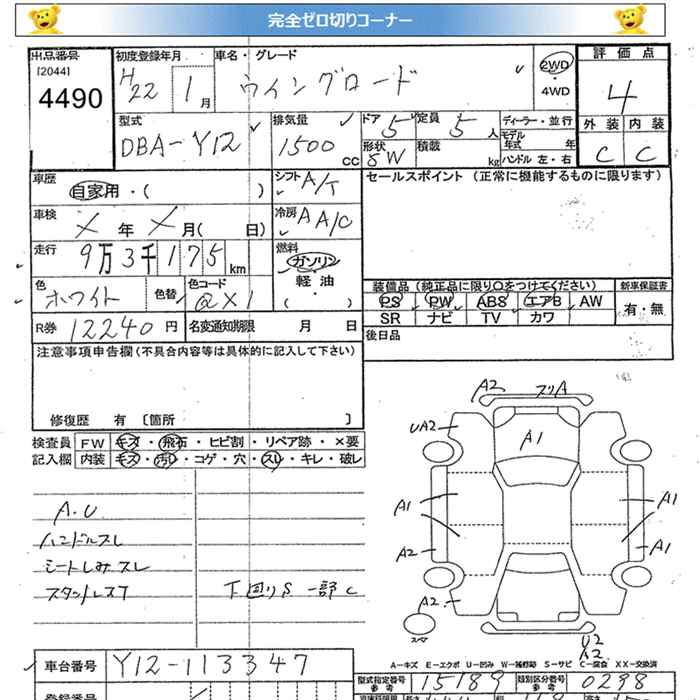 完全ゼロ切りコーナー
出品番号
[2044]
4490
初度登録年月
H22 1月
車名・グレード
ウイングロード
2WD
・
4WD
評価点
4
外装 内装
C C
型式
DBA-Y12
排気量
1500
cc
ドア 5
定員 5人
形状 SW
積載 kg
ディーラー・並行
モデル
年式 年
ハンドル 左・右
車歴
自家用・( )
シフト A/T
セールスポイント (正常に機能するものに限ります)
車検
メ 年 メ 月( 日)
冷房 A A/C
走行
9万3千175km
燃料
ガソリン
軽油
( ・ )
色
ホワイト
色替
色コード
@X1
装備品 (純正品に限り○をつけてください)
新車保証書
PS PW ABS エアB AW
SR ナビ TV カワ
有・無
R券 12240 円
名変通知期限 月 日
後日品
注意事項申告欄 (不具合内容等は具体的に記入して下さい)
修復歴 有 〔箇所 〕
検査員 FW キズ・飛石・ヒビ割・リペア跡・×要
記入欄 内装 キズ・汚れ・コゲ・穴・スレ・キレ・破レ
A.U
ハンドルスレ
シートしみ スレ
スタットレス7
下廻りS 一部C
A2 スリA
UA2
A1
A1 A1
A2 A1
A2
スペア
U2
A2
A-キズ E-エクボ U-凹み W-補修跡 S-サビ C-腐食 XX-交換済
車台番号 Y12-113347
型式指定番号
参考
15189
類別区分番号
参考
0298
登録番号